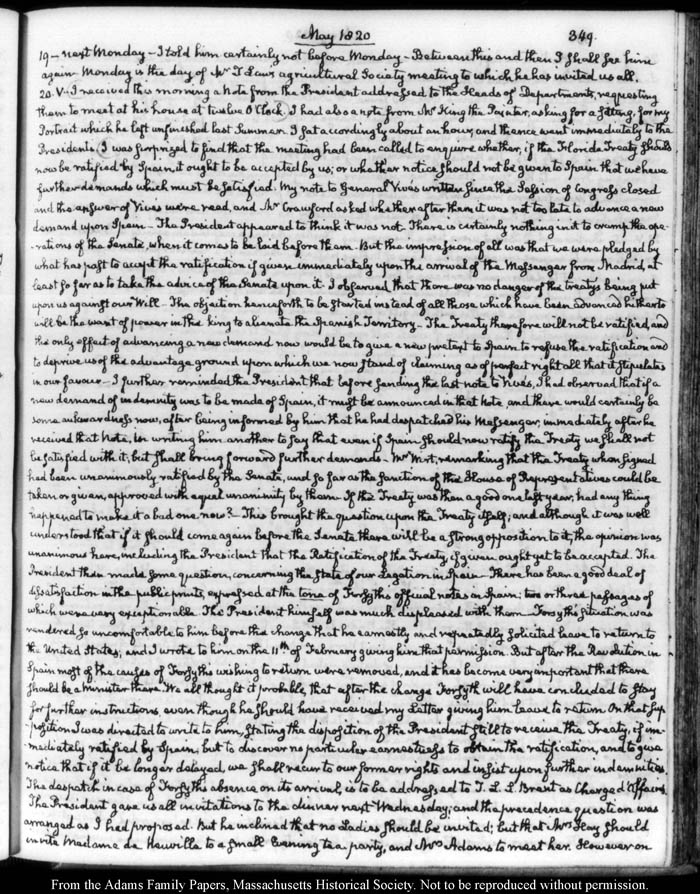 May 1820
349.
19 — next Monday — I told him certainly not before Monday — Between this and then I shall see him
again. Monday is the day of Mr T Law's agricultural Society meeting to which he has invited us all.
20. V. I received this morning a note from the President addressed to the Heads of Departments, requesting
them to meet at his house at twelve O'Clock. I had also a note from Mr King the Painter, asking for a sitting, for my
Portrait which he left unfinished last Summer. I sat accordingly about an hour, and thence went immediately to the
Presidents. I was surprized to find that the meeting had been called to enquire whether, if the Florida Treaty should
now be ratified by Spain, it ought to be accepted by us; or whether notice should not be given to Spain that we have
further demands which must be satisfied. My note to General Vives written since the Session of Congress closed
and the answer of Vives were read, and Mr Crawford asked whether after them it was not too late to advance a new
demand upon Spain — The President appeared to think it was not. There is certainly nothing in it to cramp the ope-
-rations of the Senate, when it comes to be laid before them. But the impression of all was that we were pledged by
what has past to accept the ratification if given immediately upon the arrival of the Messenger from Madrid, at
least so far as to take the advice of the Senate upon it. I observed that there was no danger of the treaty's being put
upon us against our Will — The objection henceforth to be started instead of all those which have been advanced hitherto
will be the want of power in the king to alienate the Spanish Territory — The Treaty therefore will not be ratified, and
the only effect of advancing a new demand now would be to give a new pretext to Spain to refuse the ratification and
to deprive us of the advantage ground upon which we now stand of claiming as of perfect right all that it stipulates
in our favour — I further reminded the President that before sending the last note to Vives, I had observed that if a
new demand of indemnity was to be made of Spain, it must be announced in that Note and there would certainly be
some awkwardness now, after being informed by him that he had despatched his Messenger, immediately after he
received that Note, in writing him another to say that even if Spain should now ratify the Treaty we shall not
be satisfied with it, but shall bring forward further demands — Mr Wirt, remarking that the Treaty when signed
had been unanimously ratified by the Senate, and so far as the sanction of the House of Representatives could be
taken or given, approved with equal unanimity by them. If the Treaty was then a good one last year, had any thing
happened to make it a bad one now? — This brought the question upon the Treaty itself; and although it was well
understood that if it should come again before the Senate there will be a strong opposition to it, the opinion was
unanimous here, including the President that the Ratification of the Treaty, if given ought yet to be accepted. The
President then made some question, concerning the state of our Legation in Spain — There has been a good deal of
dissatisfaction in the public prints, expressed at the tone of Forsyth's official notes in Spain; two or three passages of
which were very exceptionable. The President himself was much displeased with them — Forsyth's situation was
rendered so uncomfortable to him before this change that he earnestly and repeatedly solicited leave to return to
the United States; and I wrote to him on the 11th of February giving him that permission. But after the Revolution in
Spain most of the causes of Forsyth's wishing to return were removed, and it has become very important that there
should be a minister there. We all thought it probable, that after the change Forsyth will have concluded to stay
for further instructions, even though he should have received my Letter giving him leave to return. On that sup-
-position I was directed to write to him, stating the disposition of the President still to receive the Treaty, if im-
-mediately ratified by Spain, but to discover no particular earnestness to obtain the ratification, and to give
notice that if it be longer delayed, we shall recur to our former rights and insist upon further indemnities.
The despatch in case of Forsyth's absence on its arrival, is to be addressed to T. L. L. Brent as Chargé d'Affaires.
The President gave us all invitations to the dinner next Wednesday; and the precedence question was
arranged as I had proposed. But he inclined that no Ladies should be invited; but that Mrs Hay should
invite Madame de Neuville to a small Evening tea party, and Mrs Adams to meet her. However on
From the Adams Family Papers, Massachusetts Historical Society. Not to be reproduced without permission.